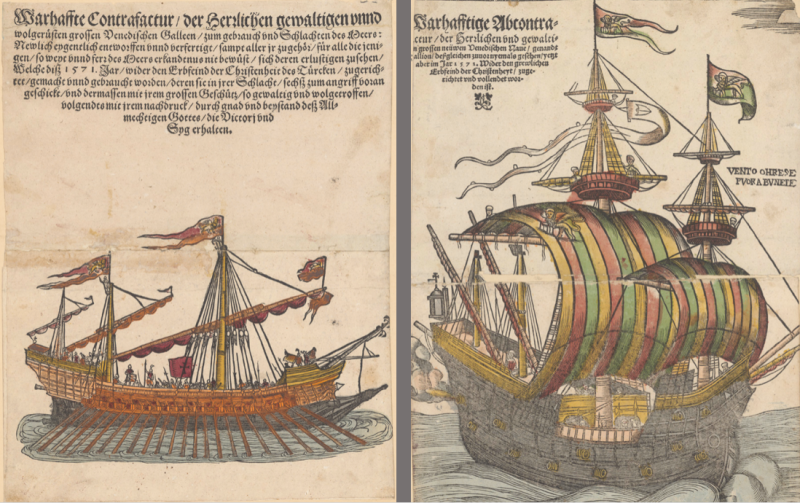 Warhaffte Contrafactur / der Herzlichen gewaltigen vnnd
wolgerüsten grossen Venedischen Galleen / zum gebrauch vnd Schlachten des Meers :
Newlich eygentlich entworffen vnnd verfertigt / sampt aller jr zugehör / für alle die jeni-
gen / so weyt vnnd ferr des Meers erkandtnus nie bewüst / sich deren erlustigen zusehen /
Welche diß 1571. Jar / wider den Erbfeind der Christenheit des Türcken / zugerich-
tet / gemacht vnnd gebraucht worden / deren sie in jrer Schlacht / sechß zum angriff voran
geschickt / vnd dermassen mit jrem grossen Geschütz / so gewaltig vnd wolgetroffen /
volgendes mit jrem nachdruck / durch gnad vnd beystand deß All-
mechtigen Gottes / die Victorj vnd
Syg erhalten.
Warhafftige Abcontra-
ctur / der Herzlichen vnd gewalti-
gen grossen neüwen Venedischen Naue / genandt
Gallion / deßgleichen zuuor nyemals gesehen / yetzt
aber im Jar 1571. Wider den grewlichen
Erbfeind der Christenheyt / zuge-
richtet vnd vollendet wor-
den ist.
VENTO OHRESE
FVORABVNETE